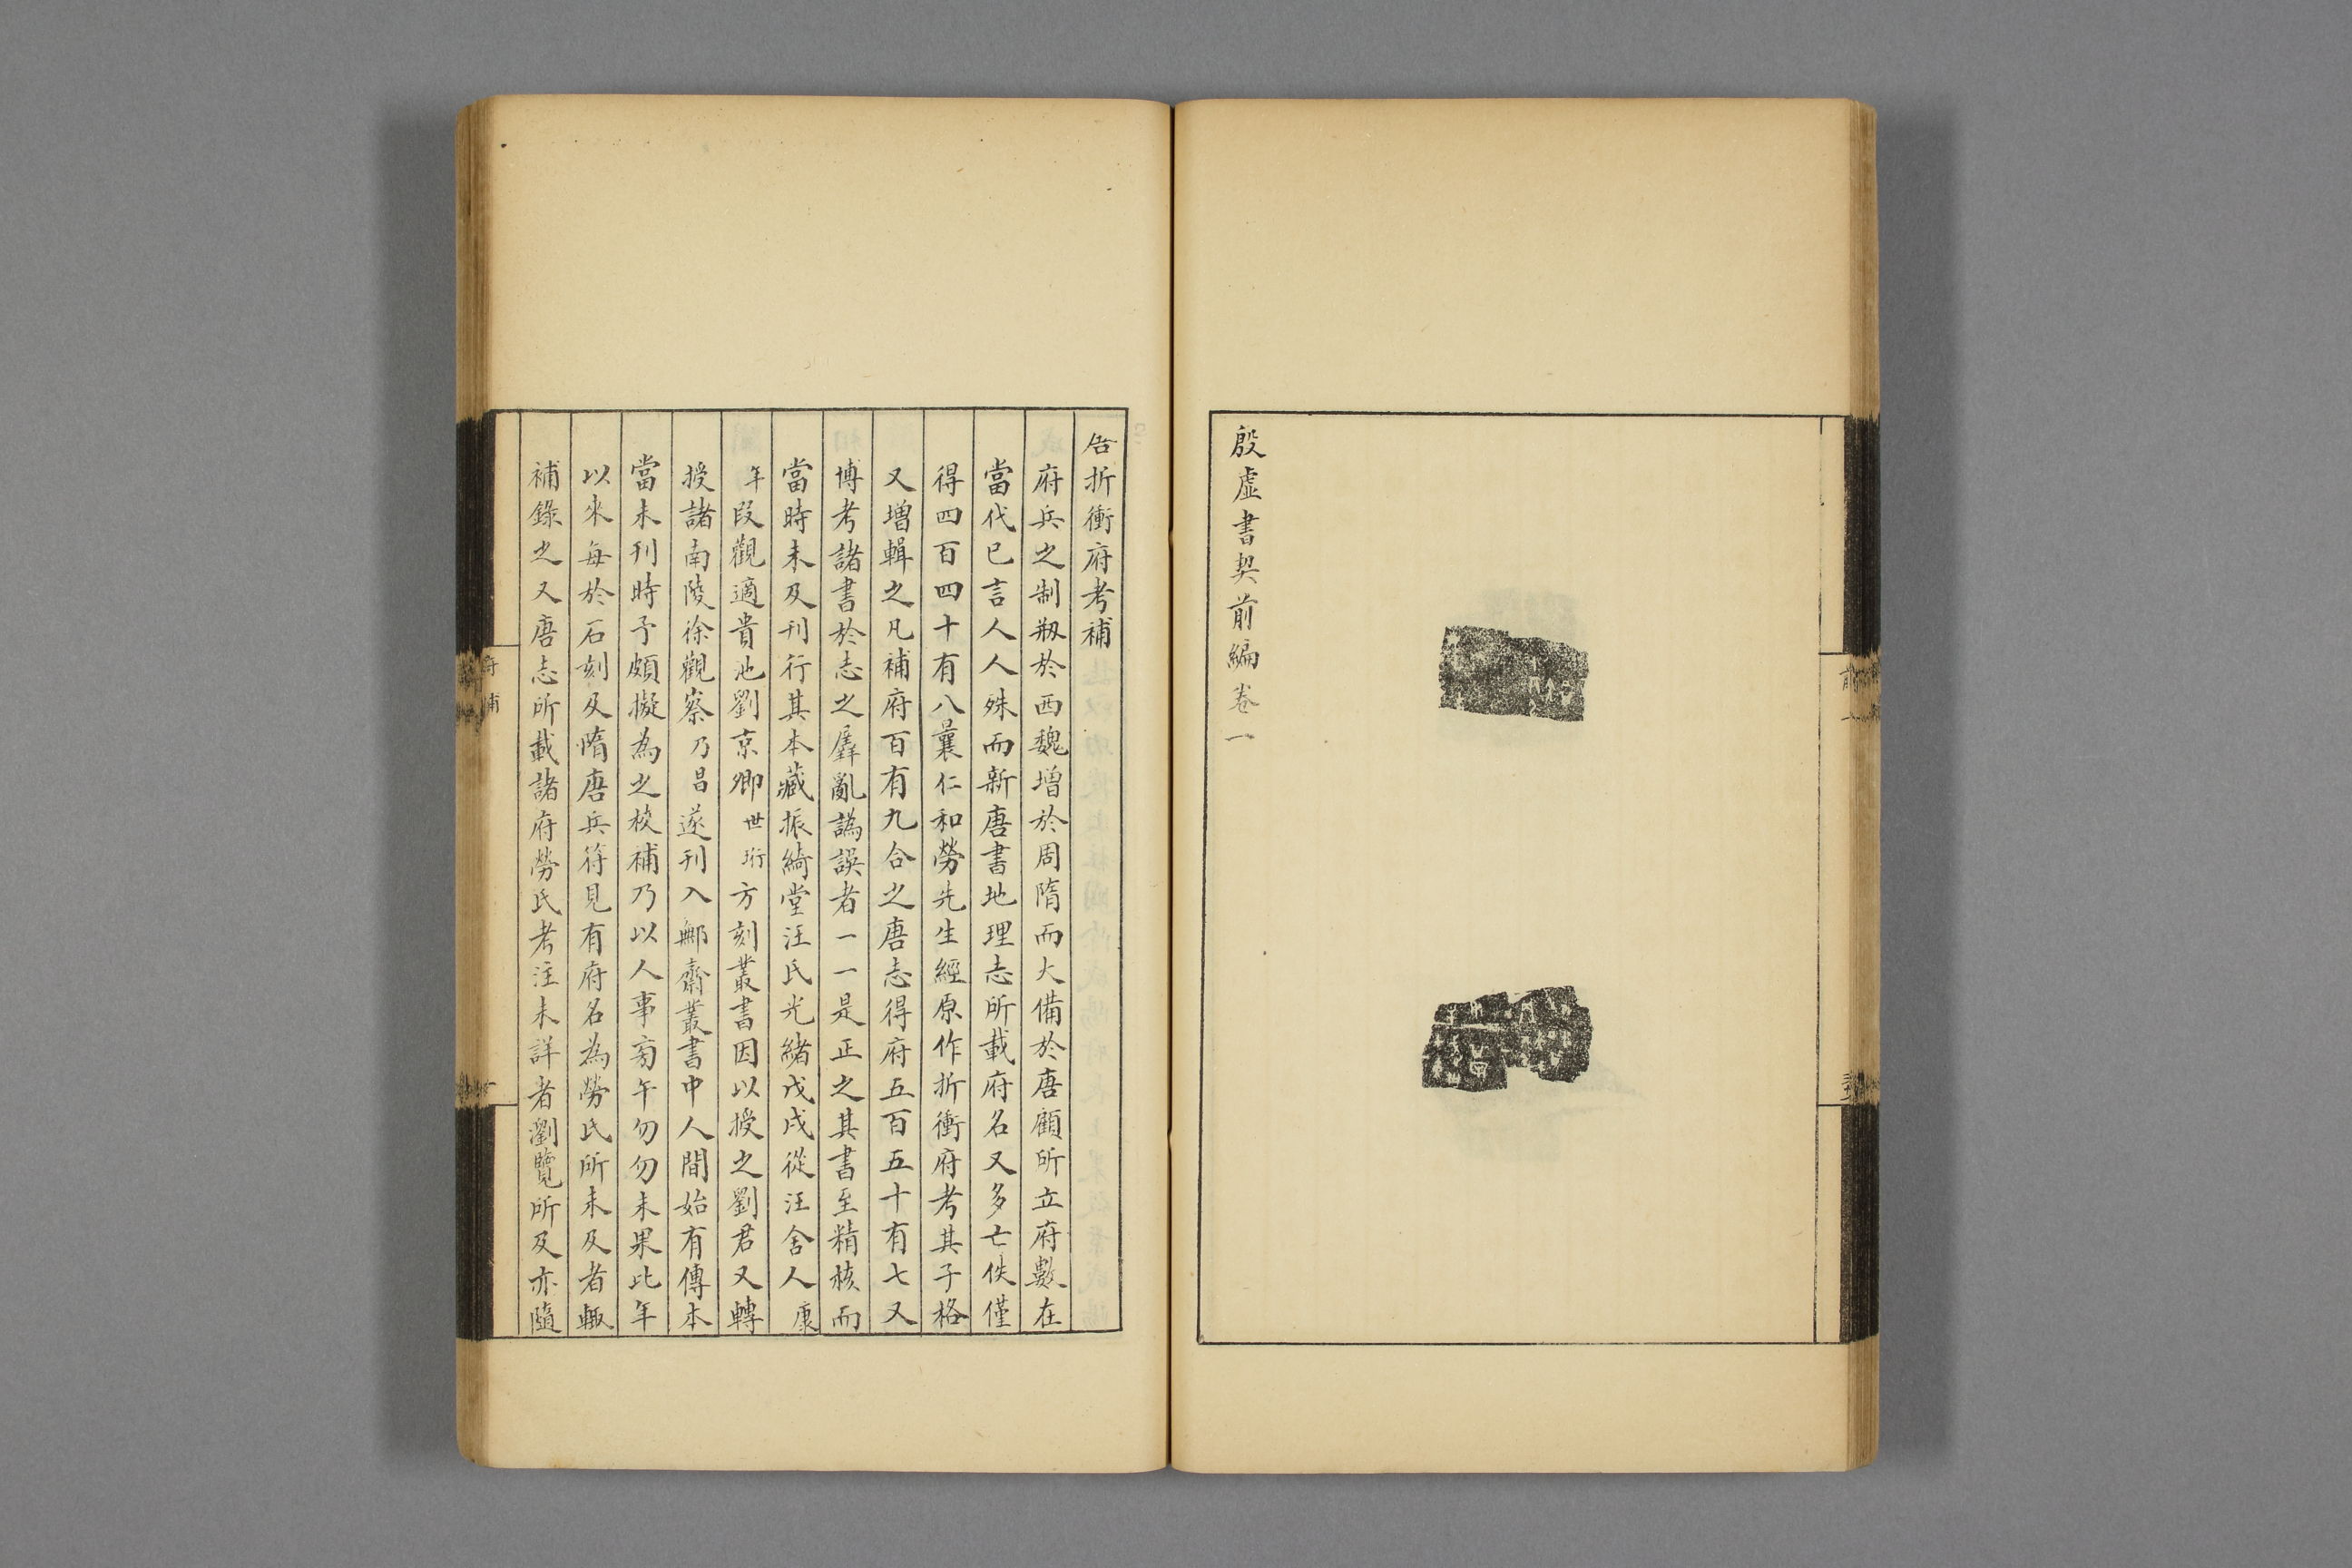 殷虛書契前編卷一
折衝府考補
府兵之制剏於西魏增於周隋而大備於唐顧所立府數在
當代已言人人殊而新唐書地理志所載府名又多亡佚僅
得四百四十有八曩仁和勞先生經原作折衝府考其子格
又增輯之凡補府百有九合之唐志得府五百五十有七又
博考諸書於志之羼亂譌誤者一一是正之其書至精核而
當時未及刊行其本藏振綺堂汪氏光緒戊戌從汪舍人康
年段觀適貴池劉京卿世珩方刻叢書因以授之劉君又轉
授諸南陵徐觀察乃昌遂刊入鄦齋叢書中人間始有傳本
當未刊時予頗擬為之校補乃以人事旁午勿勿未果比年
以來每於石刻及隋唐兵符見有府名為勞氏所未及者輒
補錄之又唐志所載諸府勞氏考注未詳者瀏覽所及亦隨